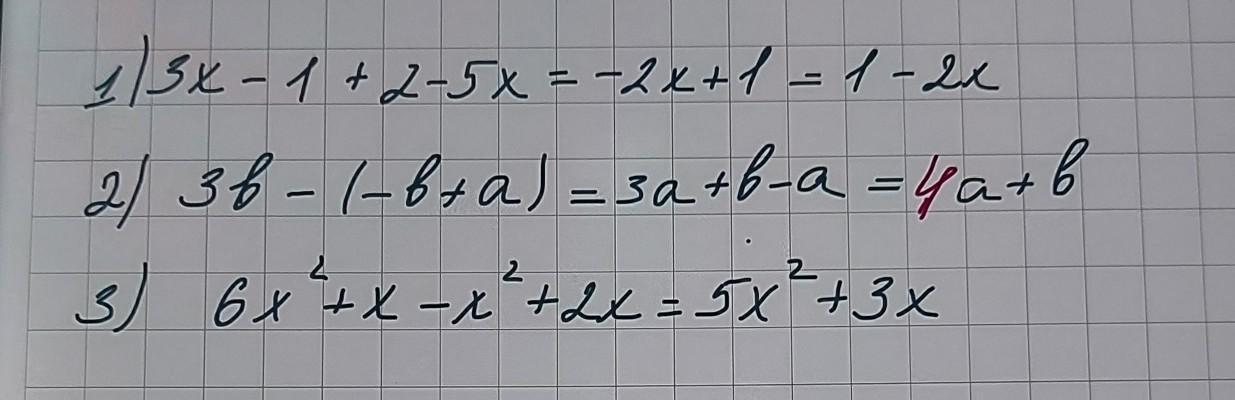 1) 3x - 1 + 2 - 5x = -2x + 1 = 1 - 2x
2) 3b - (-b + a) = 3a + b - a = 4a + b
3) 6x² + x - x² + 2x = 5x² + 3x